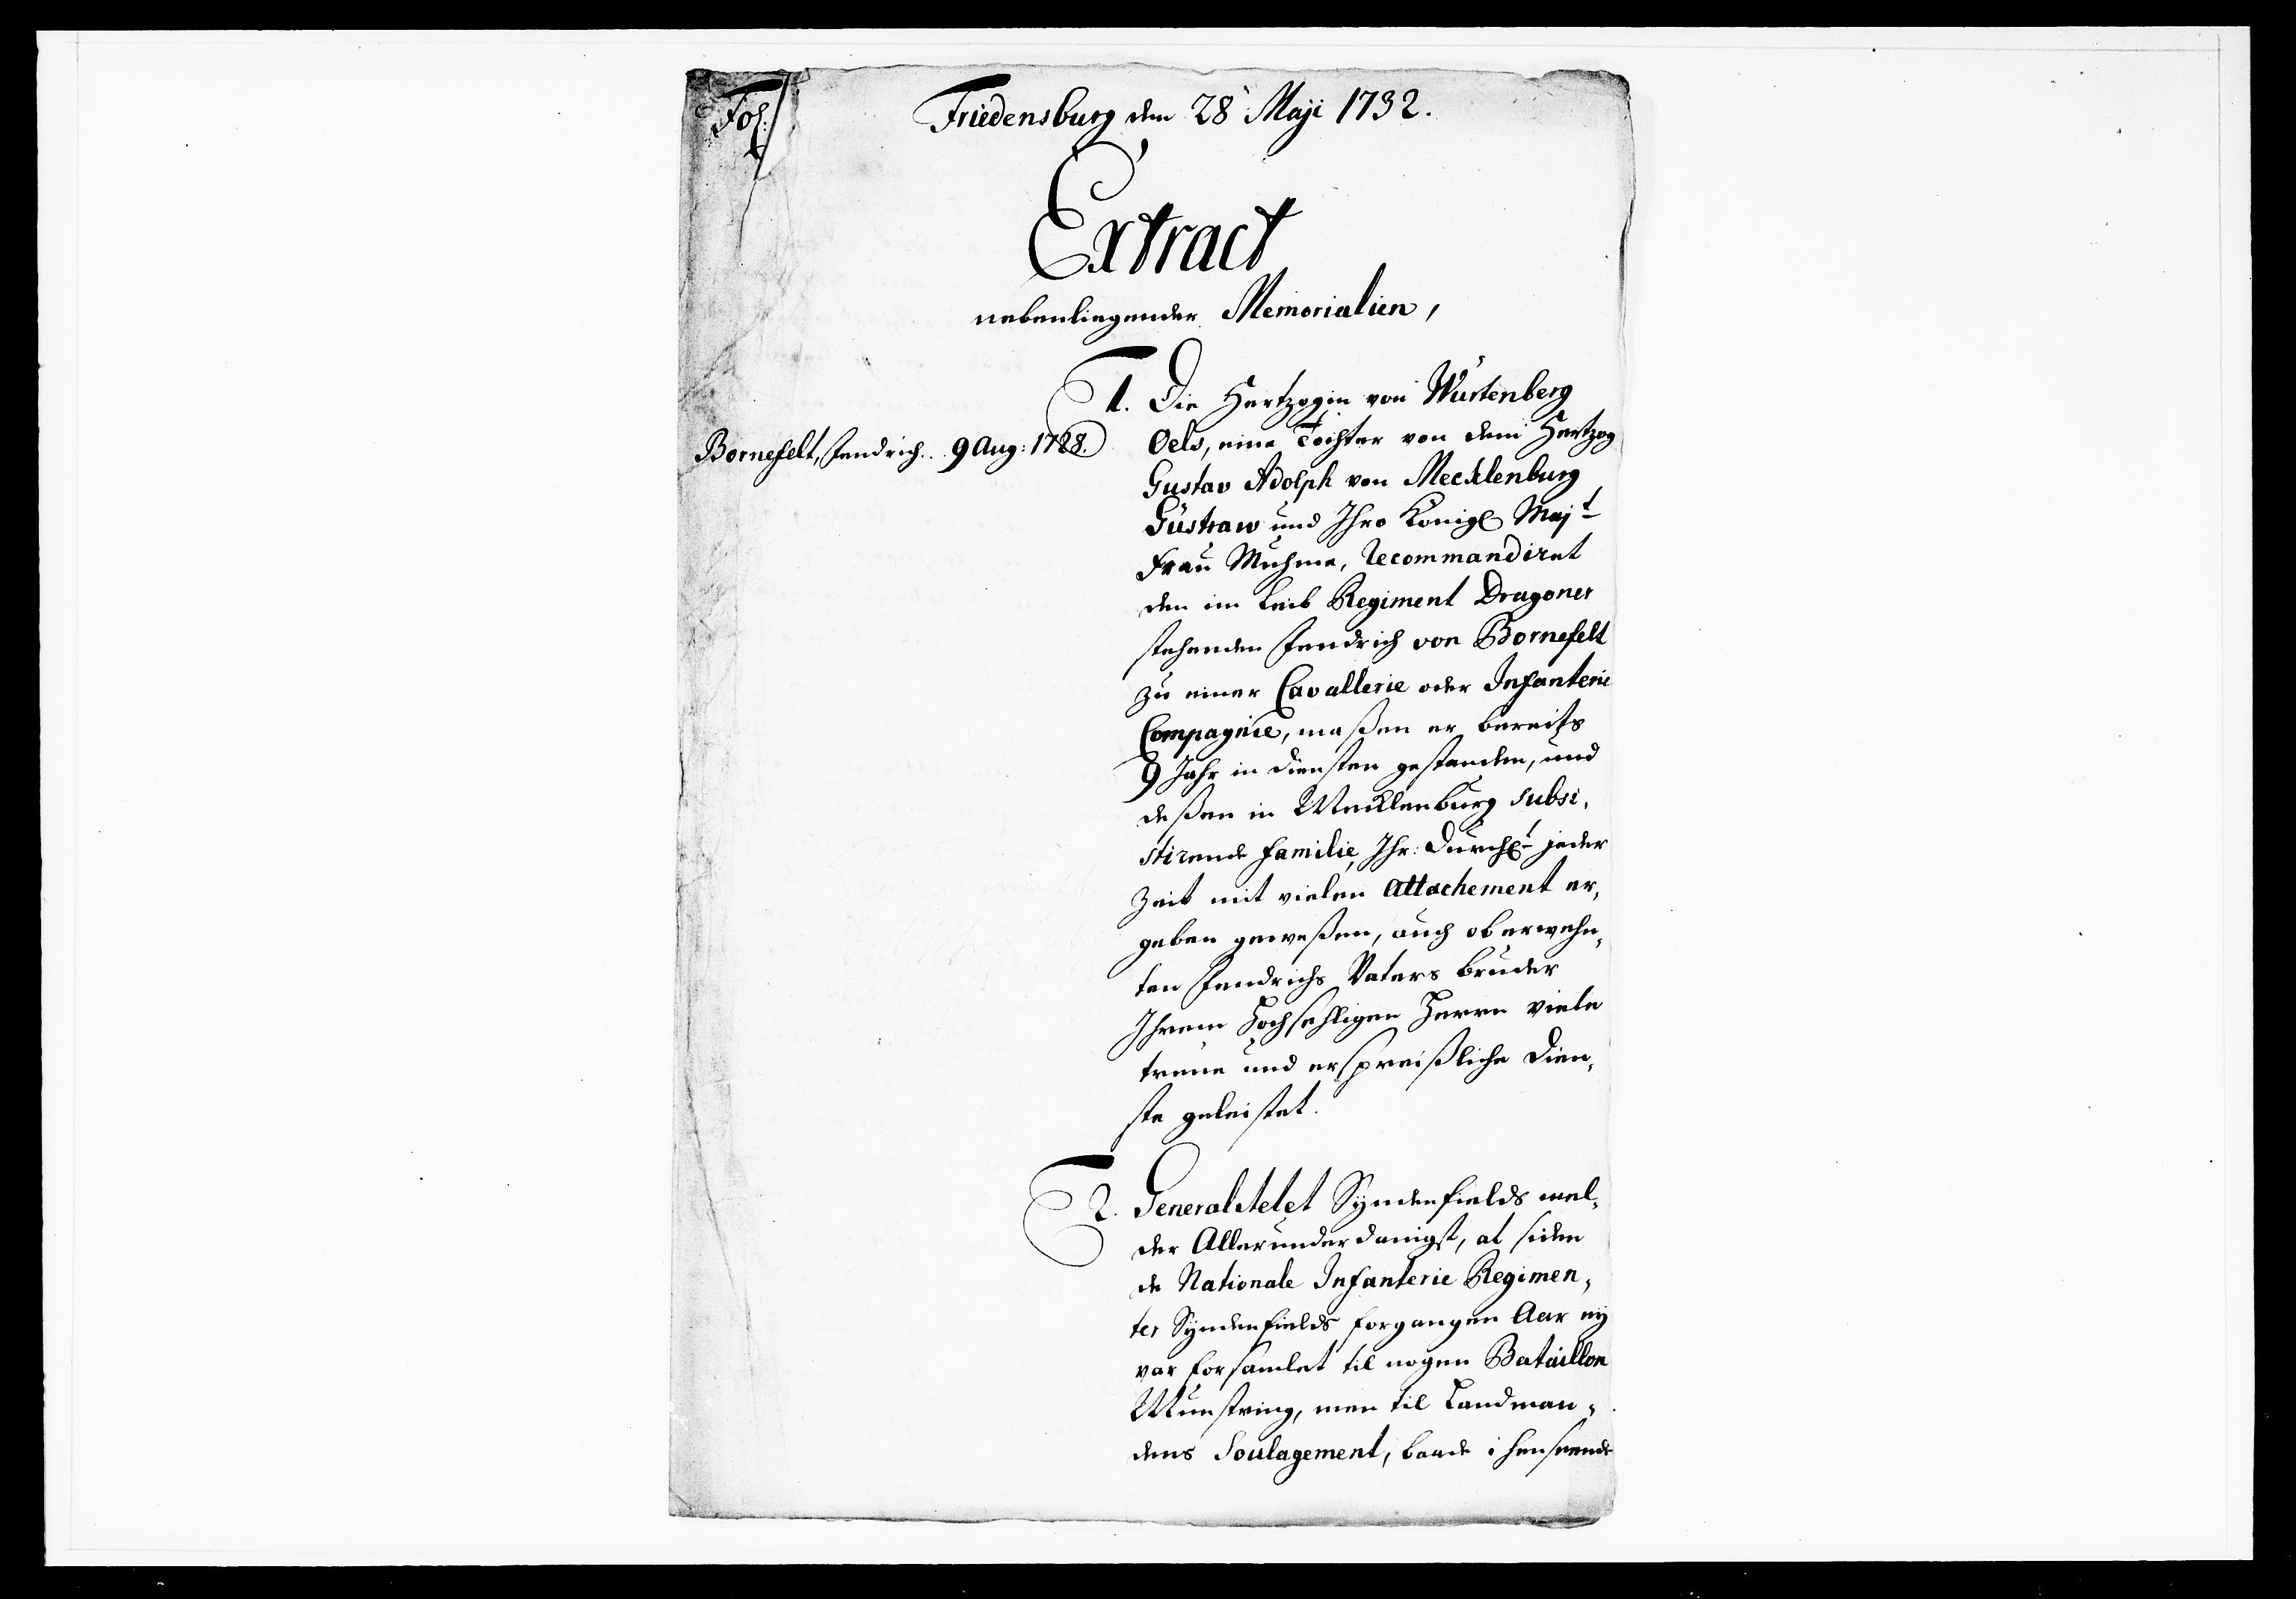 Fol:
Friedensburg den 28 Maji 1732.
Extract
nebenliegender Memorialien,
1. Die Hertzogin von Würtenberg
Bornefelt, Fendrich. 9 Aug: 1728.
Oels, eine Tochter von dem Hertzog
Gustav Adolph von Mecklenburg
Güstraw und Ihro Königl Majt
Frau Muhme, recommandiret
den im Leib Regiment Dragoner
stehenden Fendrich von Bornefelt
zu einer Cavallerie oder Infanterie
Compagnie, maßen er bereits
9 Jahr in diensten gestanden, und
deßen in Mecklenburg subsi,
stirende familie, Ihr: Durchlt jeder
Zeit mit vielen Attachement er,
geben geweßen, auch oberwehn,
ten Fendrichs Vaters bruder
Ihrem Hochsehligen Herrn viele
treue und erspreißliche Dien,
ste geleistet.
2. Generalitetet Syndenfields mel,
der Allerunderdanigst, at siden
de Nationale Infanterie Regimen,
ter Syndenfields forgangen Aar ey
var forsamlet til nogen Bataillon
Munstring, men til Landman,
dens Soulagement, baade i henseende